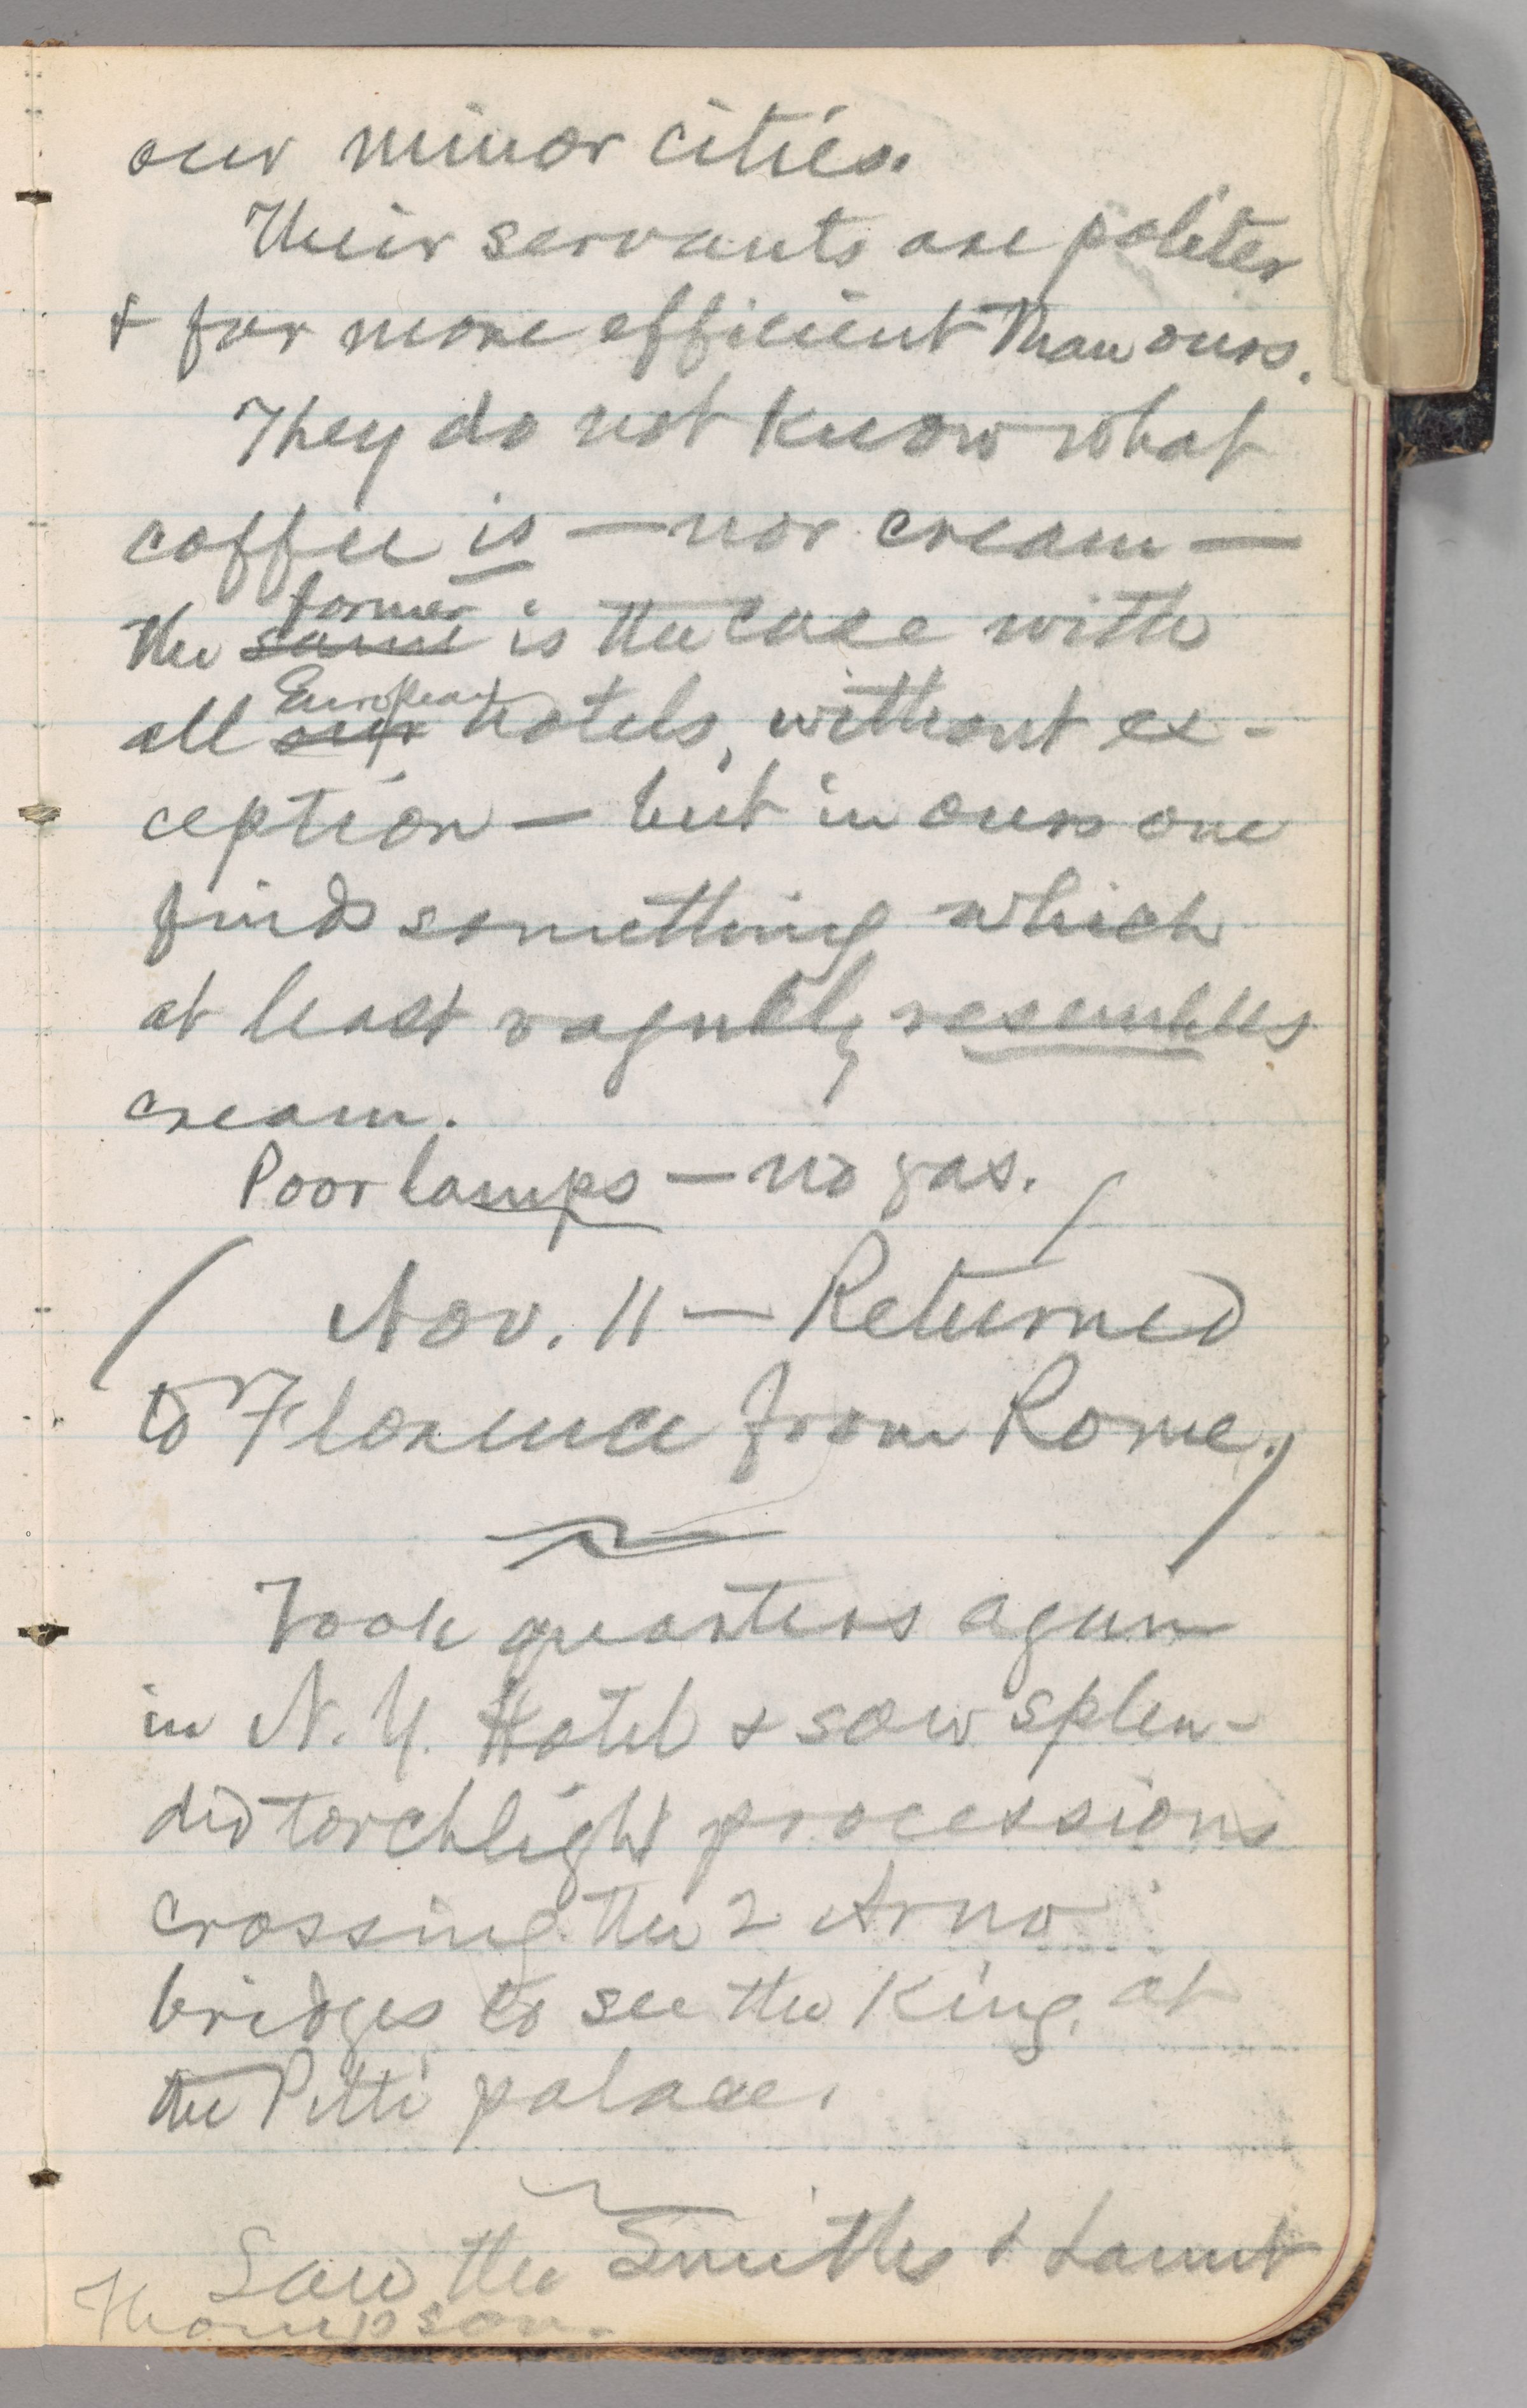 our minor cities.
Their servants are politer
& far more efficient than ours.
They do not know what
coffee is — nor cream —
the same former is the case with
all our European hotels, without ex-
ception — but in ours one
finds something which
at least vaguely resembles
cream.
Poor lamps — no gas.
(Nov. 11 — Returned
to Florence from Rome.)
Took quarters again
in N. Y. Hotel & saw splen-
did torchlight processions
crossing the 2 Arno
bridges to see the King, at
the Pitti palace.
Saw the Smiths & Launt
Thompson.